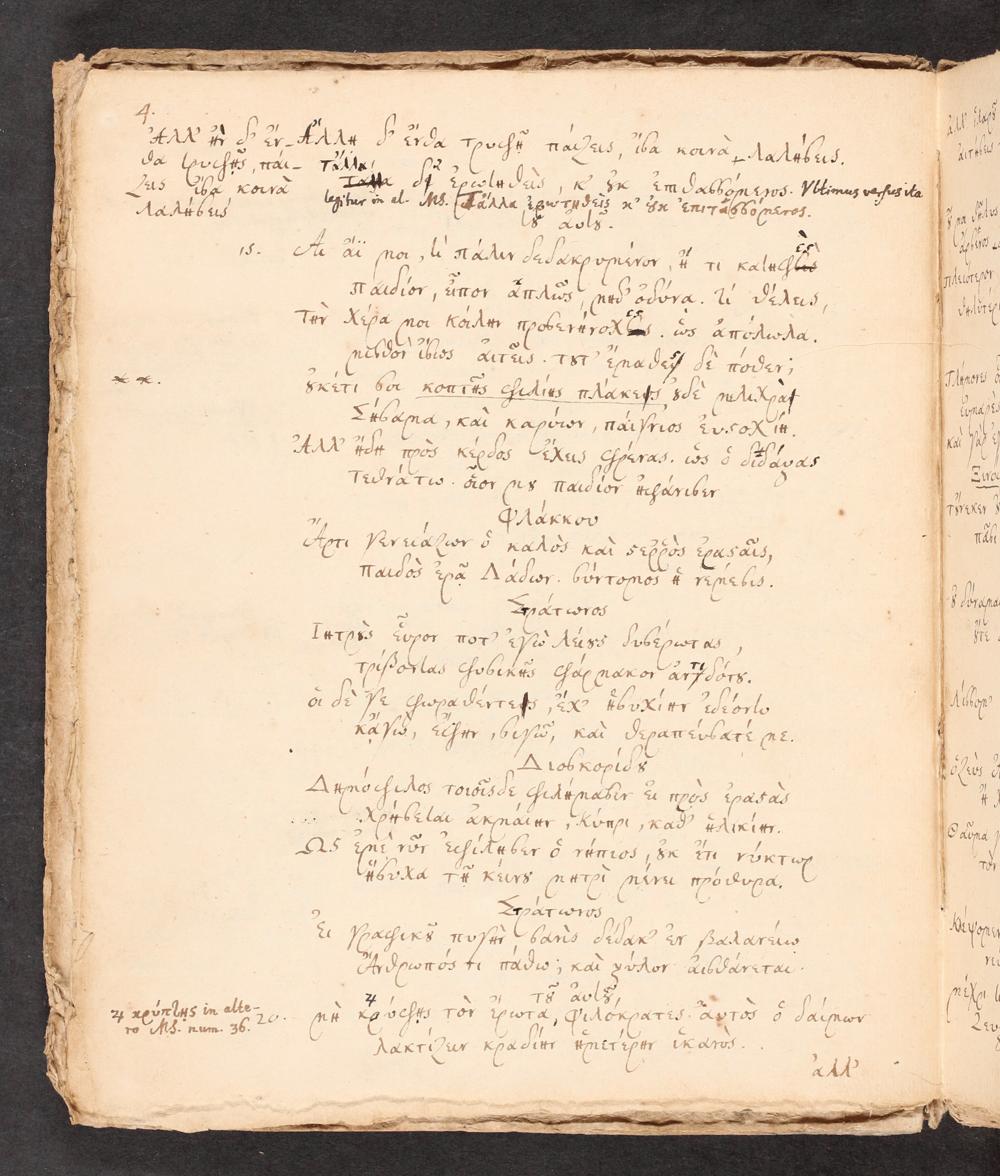 4.
Ἀλλ' ἢν δ' ἐν-
θα τρυφῇς, παι-
ζεις ἴσα κοινὰ
λαλήσεις
Ἄλλη δ' ἔνθα τρυφῇ παίζεις, ἴσα κοινὰ + λαλήσεις.
τἄλλα
δὲ ἐρωτηθεὶς, κ' ὐκ ἐπιτασσόμενος. Ultimus versus ita
legitur in al. MS. Τἄλλα ἐρωτηθεὶς κ' ὐκ ἐπιτασσόμενος.
τῦ ἀυτῦ.
15. Αι ἄϊ μοι, τί πάλιν δεδακρυμένον, ἤ τι κατηφὲς
παιδίον, εἶπον ἁπλῶς, μηδ' ὀδύνα. τί θέλεις,
τὴν χερα μοι κοίλην προσενήνοχες. ὡς ἀπόλωλα.
μισθὸν ἴσως ἀιτεῖς. τῦτ' ἔμαθες δὲ πόθεν;
* *.
ὐκέτι σοι κοπτῆς φιλίης πλάκες, ὐδὲ μελιχρὰ
Σήσαμα, καὶ καρύων, πάιγνιος ἐυστοχίη.
Ἀλλ' ἤδη πρὸς κέρδος ἔχεις φρένας. ὡς ὁ διδάξας
τεθνάτω. οἷον μυ παιδίον ἠφάνισεν
Φλάκκου
Ἄρτι γενειάζων ὁ καλὸς καὶ στερρὸς ἐρασταῖς,
παιδὸς ἐρᾷ Λάδων. σύντομος ἡ νέμεσις.
Στράτωνος
Ιητρὸς εὗρον ποτ' ἐγὼ λείυς δυσέρωτας,
τρίβοντας φυσικῆς φάρμακον ἀντιδότυ.
οἱ δὲ γε φωραθέντες, ἔχ' ἡσυχίην ἐδέοντο
κἀγὼ, ἔφην, σιγῶ, καὶ θεραπέυσατέ με.
Διοσκορίδυ
Δημόφιλος τοιοῖσδε φιλήμασιν εἰ πρὸς ἐραστὰς
χρήσεται ἀκμαίην, Κύπρι, καθ' ἡλικίην.
Ὡς ἐμὲ νῦν ἐφίλησεν ὁ νήπιος, ὐκ ἔτι νύκτωρ
ἥσυχα τῇ κείνυ μητρὶ μένει πρόθυρα.
Στράτωνος
Ἐι γραφικῦ πυγὴν σανὶς δέδακ' ἐν βαλανείω
Ἄνθρωπός τι πάθω; καὶ ξύλον ἀισθάνεται.
τῦ ἀυτῦ
4 κρύπτῃς in alte-
ro MS. num. 36.
20. μὴ 4 κρύφῃς τὸν ἔρωτα, Φιλόκρατες. ἀυτὸς ὁ δαίμων
λακτίζειν κραδίην ἡμετέρην ἱκανὸς.
ἀλλ'